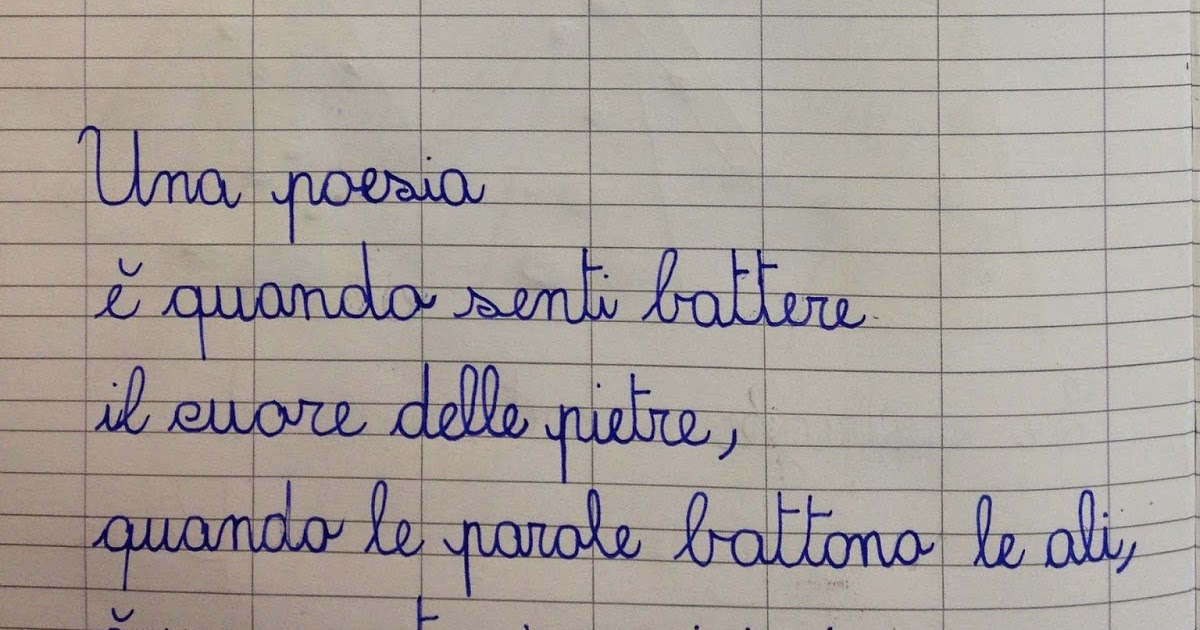 Una poesia
è quando senti battere
il cuore delle pietre,
quando le parole battono le ali,